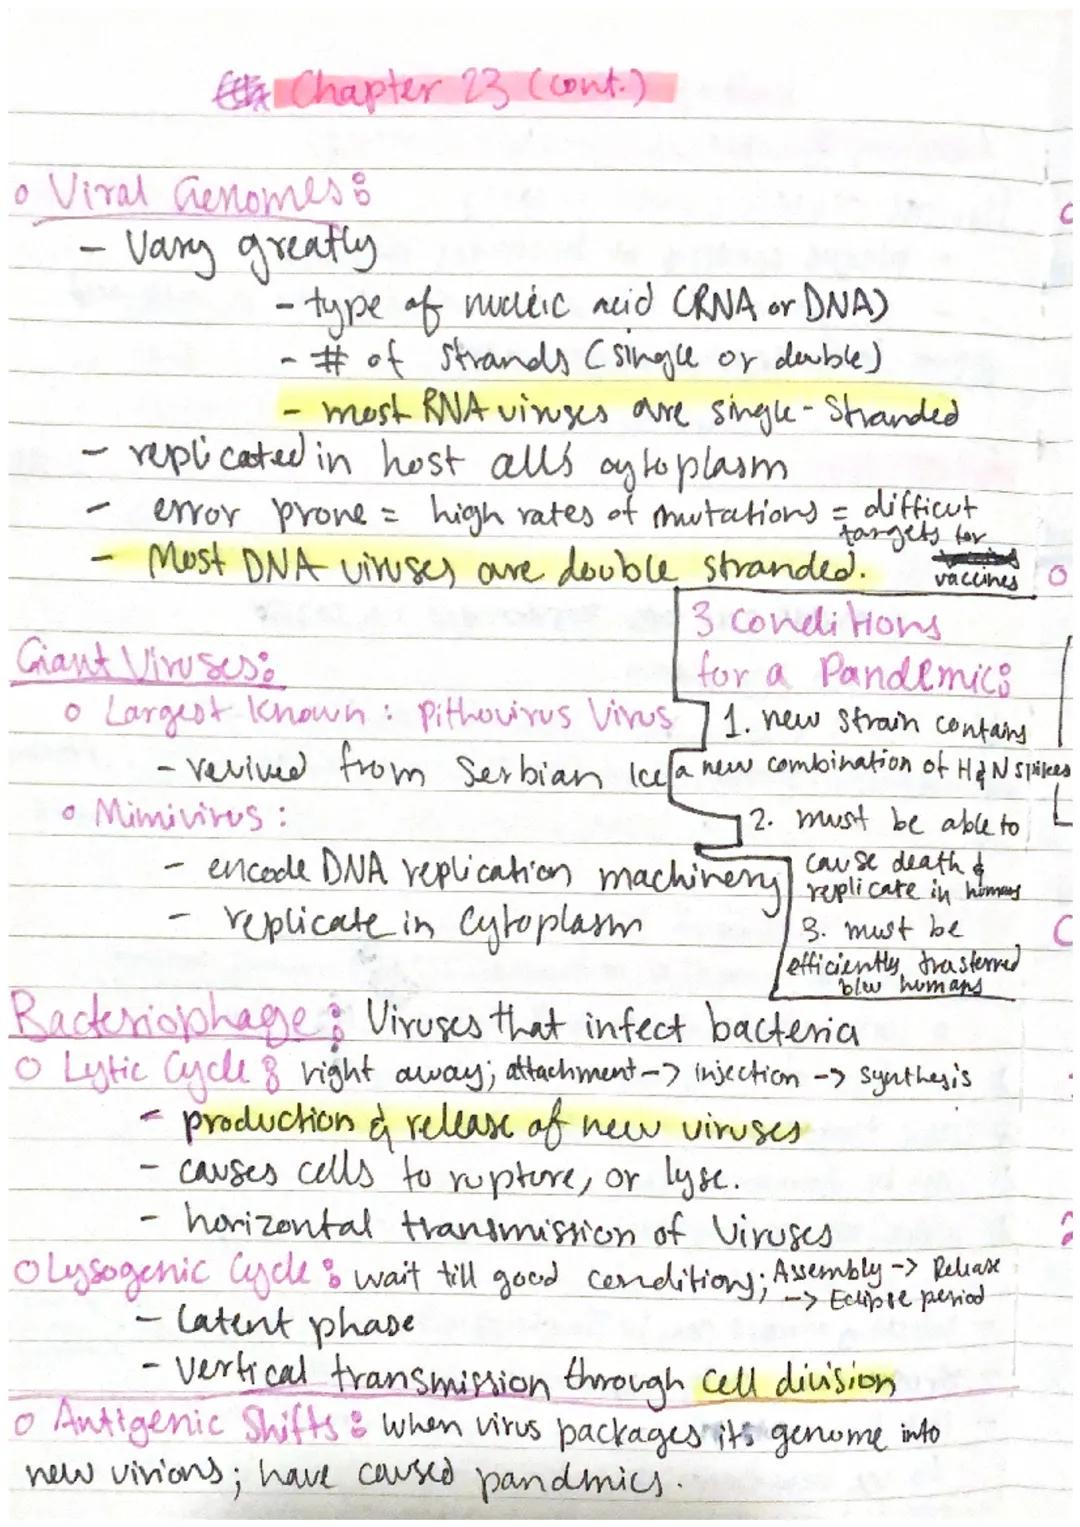 Chapter 23 (cont.)
o Viral Genomes:
- Vary greatly
- type of nucleic acid (RNA or DNA)
- # of strands (single or double)
- most RNA viruses are single-stranded
- replicated in host cell's cytoplasm
- error prone = high rates of mutations = difficut targets for vaccines
- Most DNA viruses are double stranded.
3 conditions
for a Pandemic:
1. new strain contains
a new combination of H & N spikes
2. must be able to
cause death &
replicate in humans
3. must be
efficiently trasferred
b/w humans
Giant Viruses:
o Largest known: Pithovirus Virus
- revived from Serbian Ice
o Mimivirus:
- encode DNA replication machinery
- replicate in cytoplasm
Bacteriophage: Viruses that infect bacteria
o Lytic Cycle: right away; attachment -> injection -> synthesis
- production & release of new viruses
- causes cells to rupture, or lyse.
- horizontal transmission of viruses
o Lysogenic Cycle: wait till good conditions; Assembly -> Release
-> Eclipse period
- latent phase
- vertical transmission through cell division
o Antigenic Shifts: when virus packages its genome into
new virions; have caused pandmics.